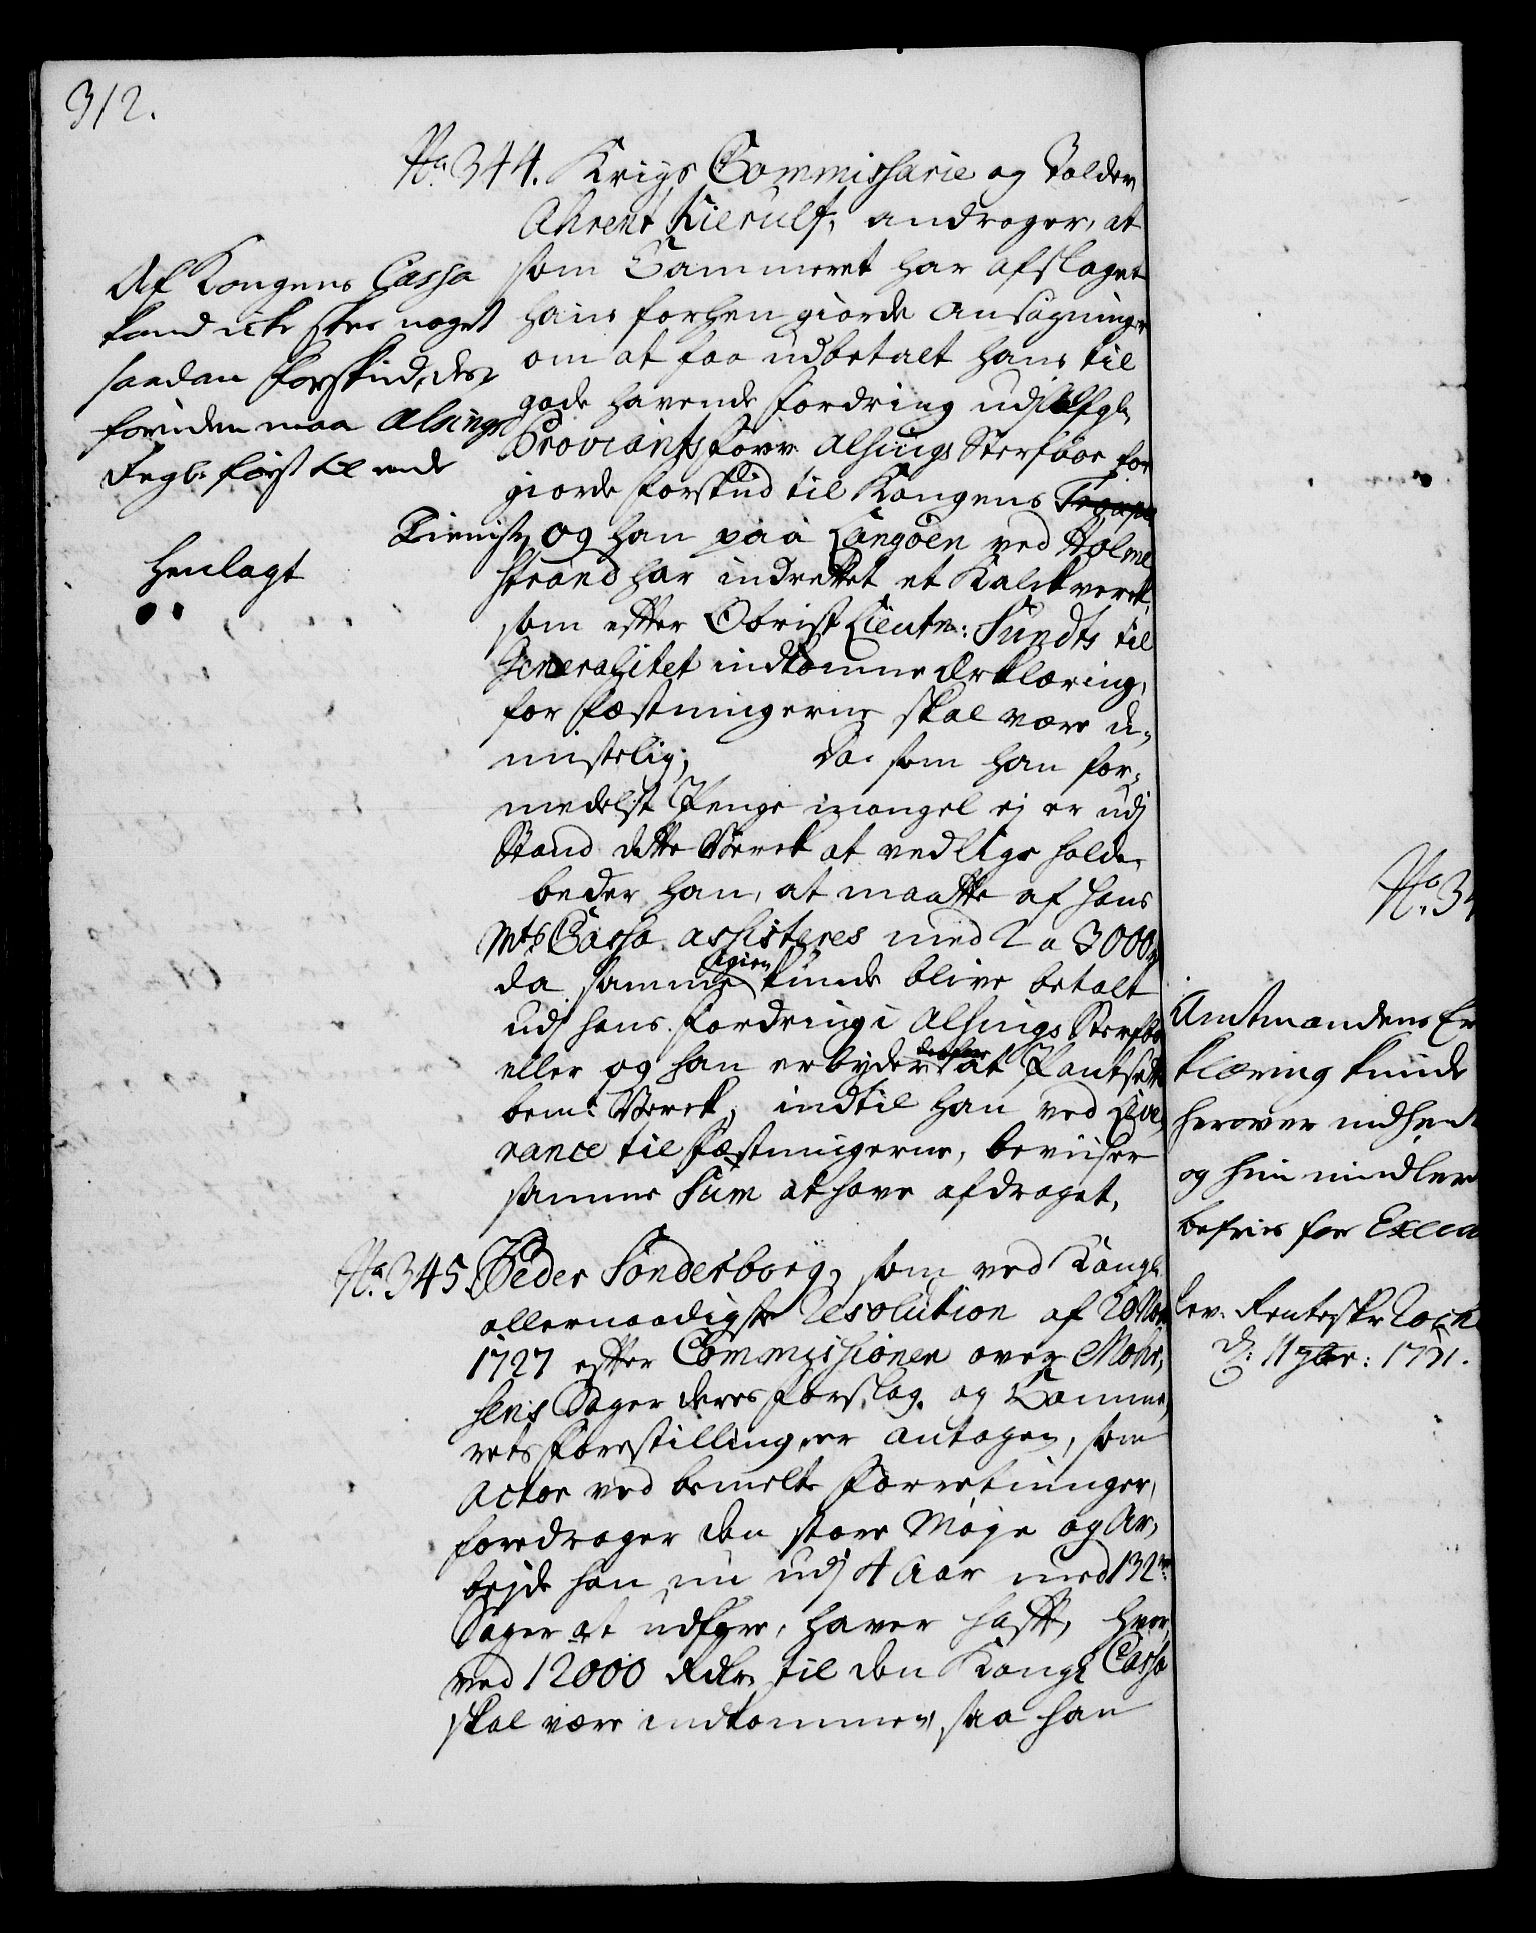 312.
No. 344. Krigs Commissarie og Tolder
Ahrent Kierulf, andrager, at
som Cammeret har afslaget
hans forhen giorde ansøgninger
om at faa udbetalt hans til
gode havende fordring udj Afgl.
Proviantsforv. Alsings Sterfboe for
giorde forskud til Kongens
Tieniste, og han paa Langøen ved Holme
strand har indrettet et Kalckverck,
som efter Obrist Lieutn: Sundts til
Generalitet indkomne Erklæring,
for Fæstningerne skal være u-
mistelig; Da som han for-
medelst Penge mangel ej er udj
Stand dette Verck at vedlige holde,
beder han, at maatte af Hans
Mts Cassa assisteres med 2 a 3000
da samme igien kunde blive betalt
udj hans fordring i Alsings Sterfboe
eller og han erbyder at Pantsætte
bemt. Verck, indtil han ved Leve-
rance til Fæstningerne, beviiser
samme Sum at have afdraget.
Af Kongens Cassa
kand icke skee noget
saadan forskud, des-
foruden maa Alsings
Regl. først til ende
Henlagt
No. 345. Peder Sønderborg, som ved Kongl.
allernaadigste Resolution af
1727 efter Commissionen over Mohr-
sens Sager deres forslag, og Camme-
rets forestilling er antagen, som
Actor ved bemelte forretninger,
foredrager den store Møje og Ar-
bejde han nu udj 4 Aar med 132
Sager at udføre, haver hafft, hvor-
ved 12000 Rdlr. til den Kongl. Cassa
skal være indkommen, saa han
No. 34
Amtmandens Er
klæring kunde
herover indhent
og hin midler
befries for Execu
lev. Renteskr.
d: 11 7br: 1731.